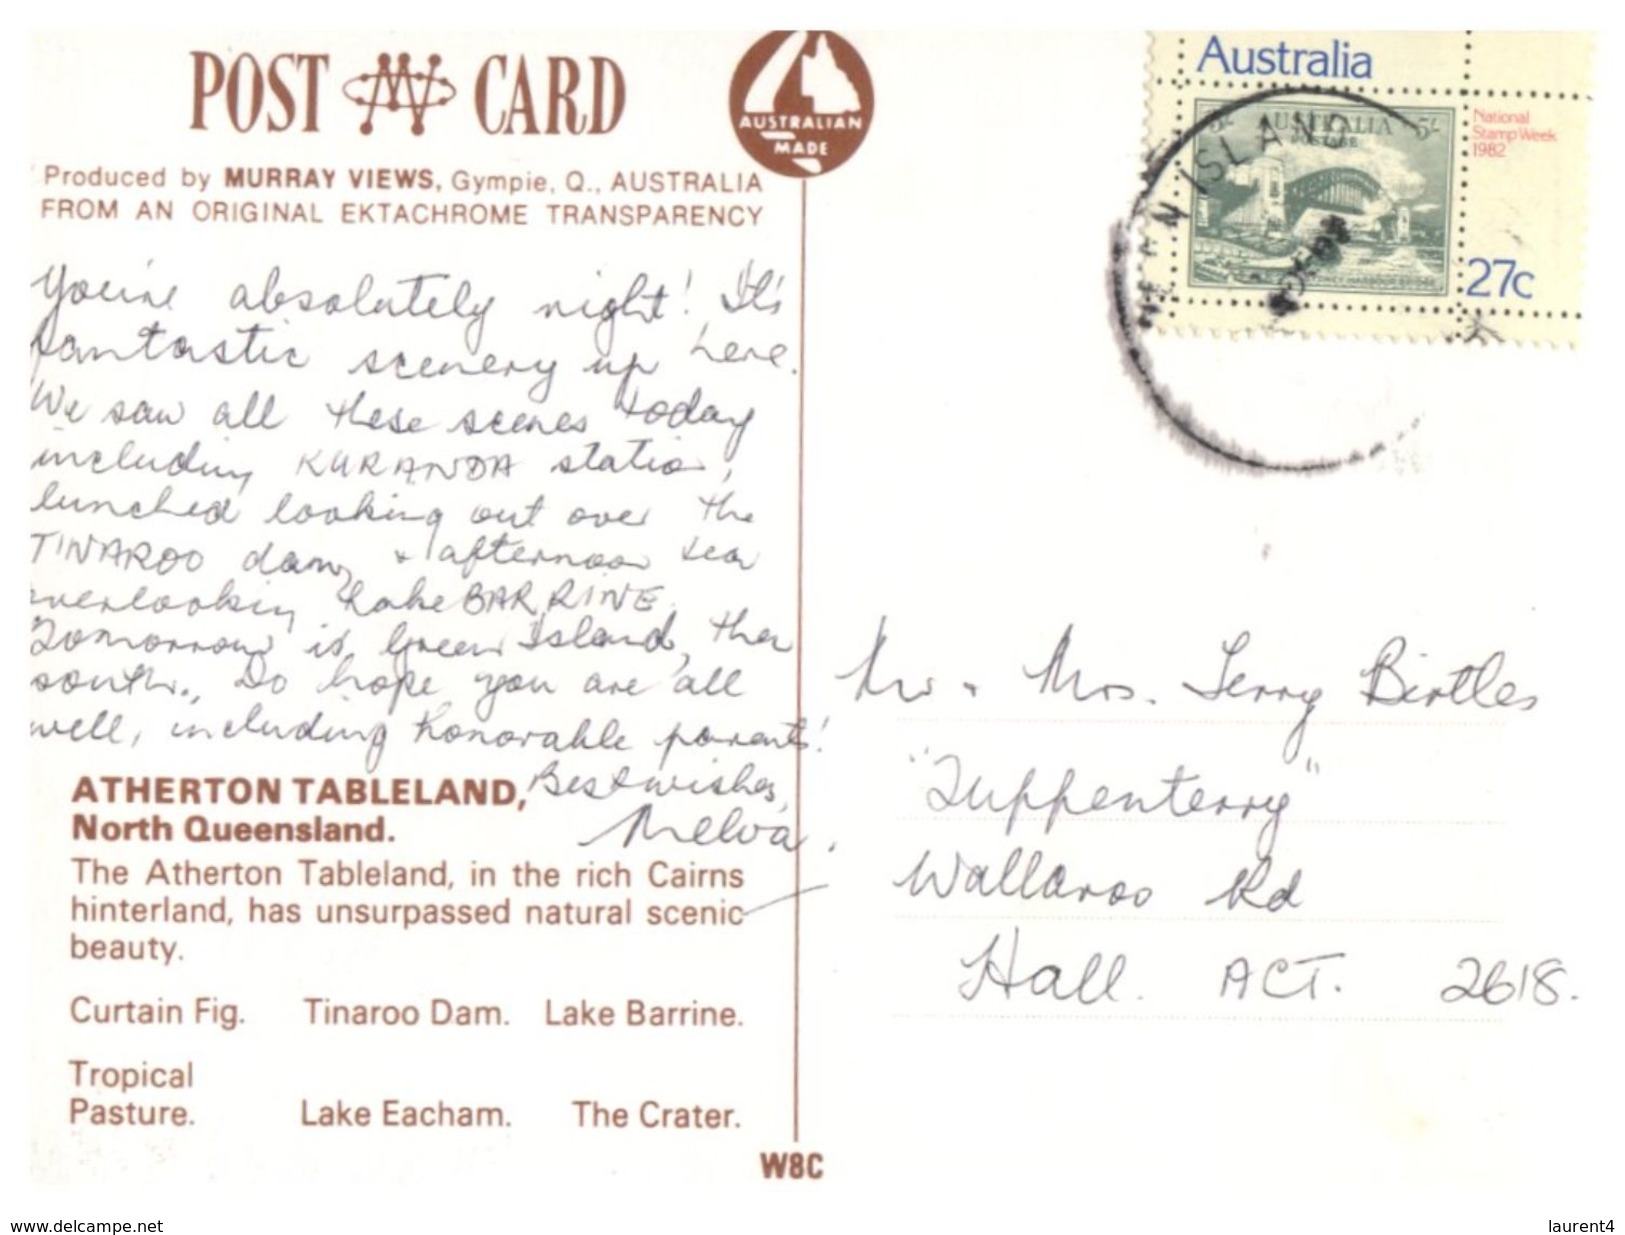 POST CARD
AUSTRALIAN
MADE
Produced by MURRAY VIEWS, Gympie, Q., AUSTRALIA
FROM AN ORIGINAL EKTACHROME TRANSPARENCY
You're absolutely right! It's
fantastic scenery up here.
We saw all these scenes today
including KURANDA station,
lunched looking out over the
TINAROO dam, & afternoon tea
overlooking Lake BARRINE.
Tomorrow is Green Island, then
south. Do hope you are all
well, including honorable parents!
Best wishes,
Melva.
ATHERTON TABLELAND,
North Queensland.
The Atherton Tableland, in the rich Cairns
hinterland, has unsurpassed natural scenic
beauty.
Curtain Fig. Tinaroo Dam. Lake Barrine.
Tropical
Pasture. Lake Eacham. The Crater.
W8C
Australia
5/- AUSTRALIA 5/-
POSTAGE
National
Stamp Week
1982
27c
ISLAND
Mr & Mrs. Terry Birtles
"Tuppenterry"
Wallaroo Rd
Hall. ACT. 2618.
www.delcampe.net
laurent4